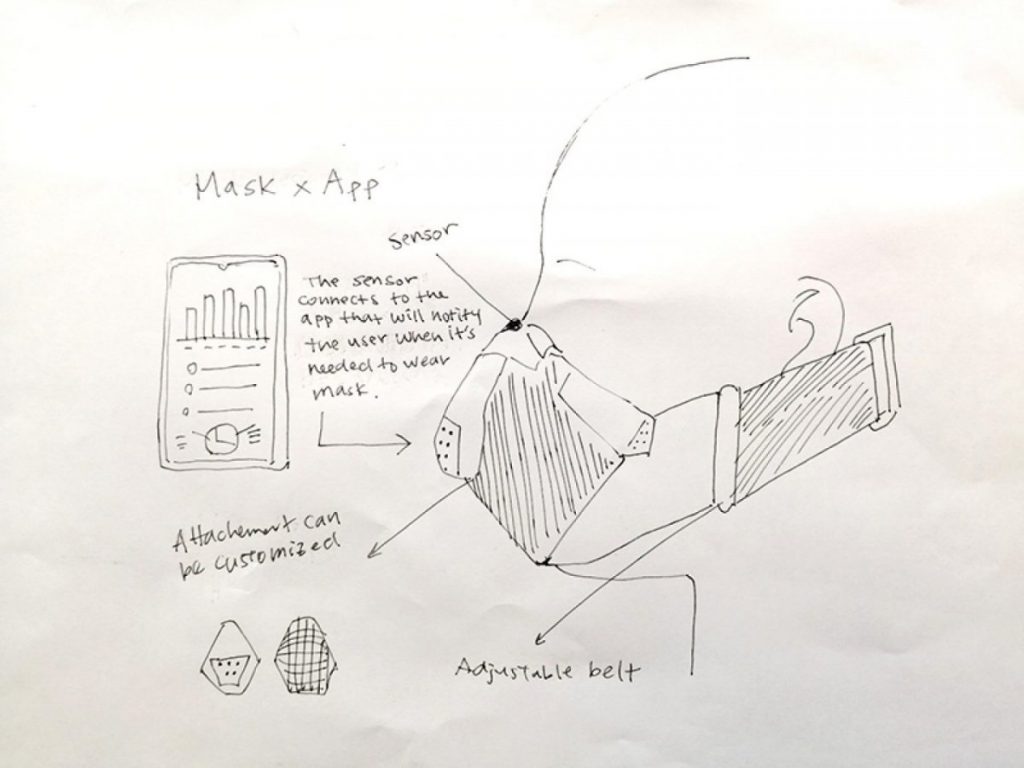 Mask x App
Sensor
The sensor
connects to the
app that will notify
the user when it's
needed to wear
mask.
Attachement can
be customized
Adjustable belt